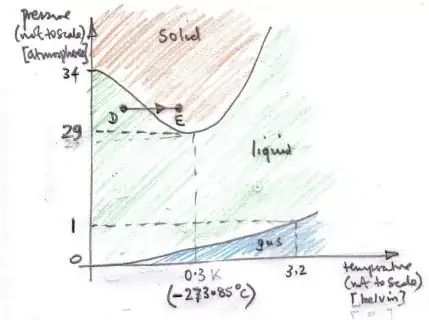 pressure
(not to scale)
[atmospheres]
solid
34
D
E
29
liquid
1
gas
0
0.3 K
3.2
(-273.85°C)
temperature
(not to scale)
[kelvin]